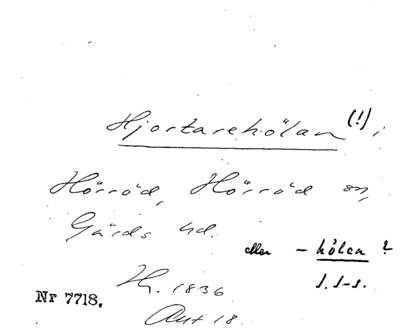 Hjortarehölan (!) i
Hörröd, Hörröd sn,
Gärds hd.
eller - hålan ?
S. S-s.
H. 1836
Nr 7718.
Akt 18